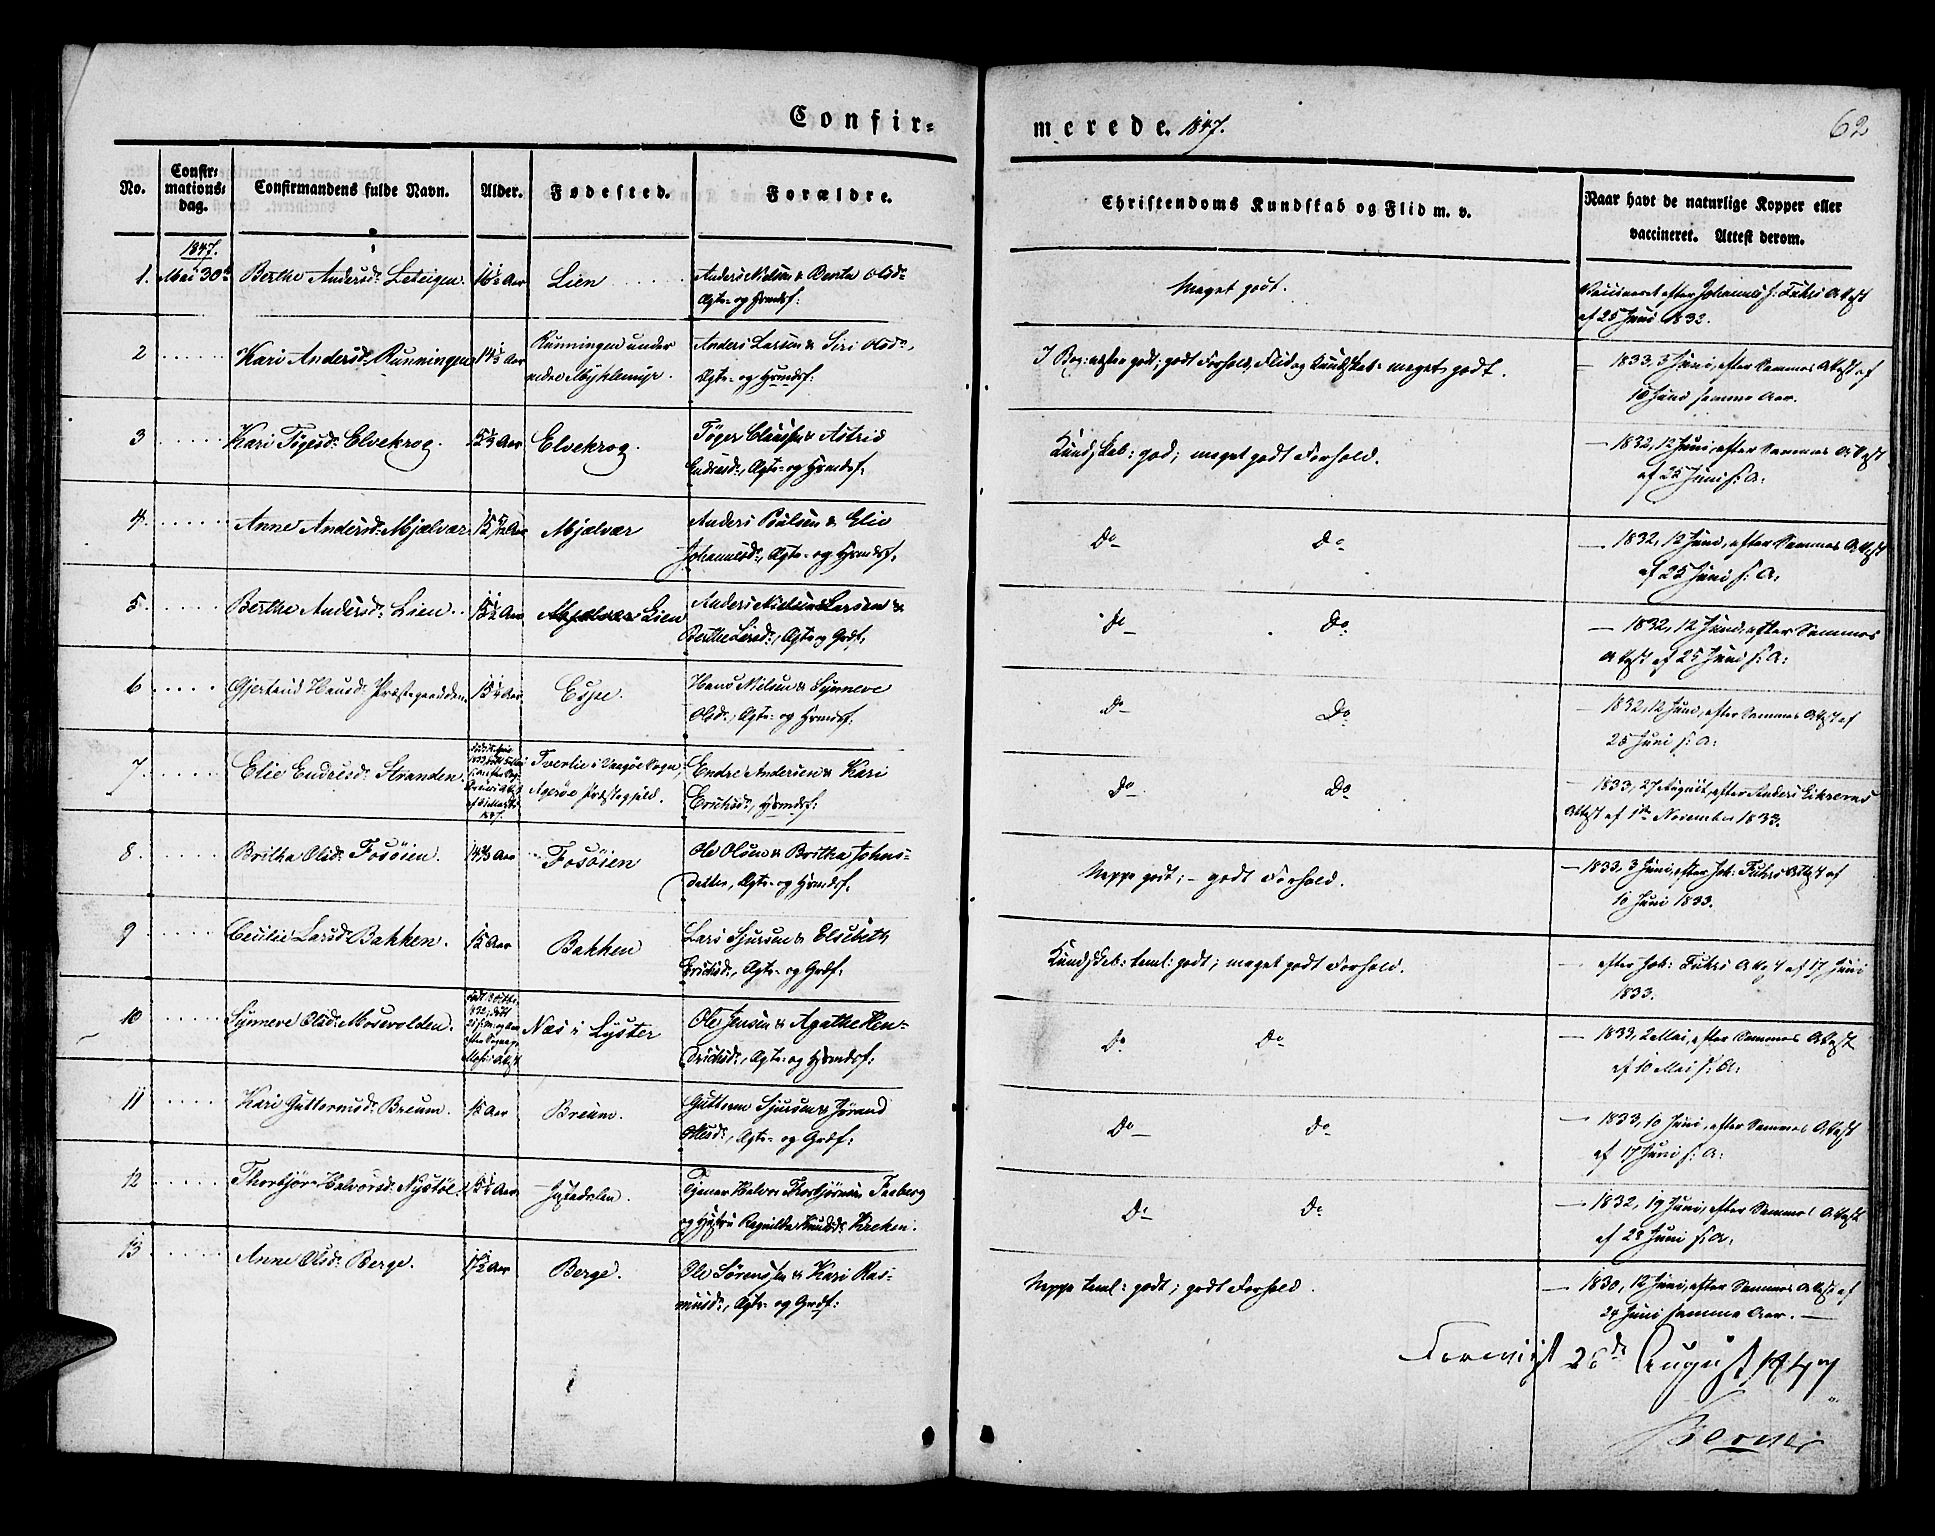 Confir- merede. 1847. 62
No. Confir-mations-dag. Confirmandens fulde Navn. Alder. Fødested. Forældre. Christendoms Kundskab og Flid m. v. Naar havt de naturlige Kopper eller vaccineret. Attest derom.
1847.
1. Mai 30te Berthe Andersd: Leteigen. 16½ Aar Lien Anders Nielsen & Bente Olsd:
Ægte- og Grmdsf: Meget godt. Vaccineret efter Johannes s: Fuhrs Attest
af 25 Juni 1832.
2 Kari Andersd: Runningen Aar Runningen under Anders Larsen & Siri Olsd:,
nedre Myklemyr. Ægte- og Grmdsf: I Bog: næsten godt; godt Forhold, Flid og Kundskab: meget godt. — 1833, 3 Juni, efter Sammes Attest af
10 Juni samme Aar.
3 Kari Tøgersd: Elvekrog. Aar Elvekrog. Tøger Claussen & Astrid
Endresd:, Ægte- og Grmdsf: Kundskab: god; meget godt Forhold. — 1832, 12 Juni, efter Sammes Attest
af 25 Juni s: A:
4. Anne Andersd: Mjelvær. Aar Mjelvær Anders Poulsen & Elie
Johannesd:, Ægte- og Grmdsf: Do Do — 1832, 12 Juni, efter Sammes Attest
af 25 Juni s: A:
5. Berthe Andersd: Lien. 15½ Aar Lien Anders Larsen &
Berthe Larsd:, Ægte og Grdf: Do Do — 1832, 12 Juni, efter Sammes
Attest af 25 Juni s: A:
6 Gjertrud Hansd: Præstegaarden. 15¼ Aar Espe. Hans Nielsen & Synneve
Olsd:, Ægte- og Grmdsf: Do Do — 1832, 12 Juni, efter Sammes Attest af
25 Juni s: A:
7. Elie Endresd: Stranden. 1847. Tverlie i Vaagøe Sogn,
Agerøe Præstegjeld. Endre Andersen & Kari
Erichsd:, Grmdsf: Do Do — 1833, 27 August, efter Anders Eikrems
Attest af 1ste November 1833.
8. Britha Olsd: Fosøien. 14⅔ Aar Fosøien Ole Olsen & Britha Johns-
datter, Ægte- og Grmdsf: Neppe godt; – godt Forhold. — 1833, 3 Juni, efter Joh: Fuhrs Attest af
10 Juni 1833.
9 Cecilie Larsd: Bakken. 15 Aar Bakken Lars Sjursen & Elsebeth
Erichsd:, Ægte- og Grdf: Kundskab: teml: godt; meget godt Forhold. — efter Joh: Fuhrs Attest af 17 Juni
1833.
10 Synneve Olsd: Mosevolden. Næs i Lyster Ole Jensen & Agathe Hen-
drichsd:, Ægte- og Grmdsf: Do Do — 1833, 2 Mai, efter Sammes Attest
af 10 Mai s: A:
11 Kari Guttormsd: Breum. 15 Aar Breum. Guttorm Sjursen & Jørand
Olsd:, Ægte- og Grdf: Do Do — 1833, 10 Juni, efter Sammes Attest
af 17 Juni s: A:
12 Thorbjør Halvorsd: Nystøl. Aar Justedalen. Tjener Halvor Thorbjørnsen Faaberg
og Hustru Ragnilde Knudsd: Kreken. Do Do — 1832, 19 Juni, efter Sammes Attest
af 28 Juni s: A:
13 Anne Olsd: Berge. Aar Berge. Ole Sørensen & Kari Ras-
musd:, Ægte- og Grdf: Neppe teml: godt; godt Forhold. — 1830, 12 Juni, efter Sammes Attest af
24 Juni samme Aar. —
Foreviist 28de August 1847